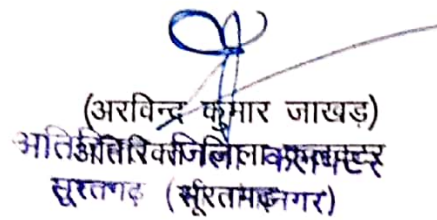 (अरविन्द्र कुमार जाखड़)
अतिरिक्त जिला कलक्टर
सूरतगढ़ (